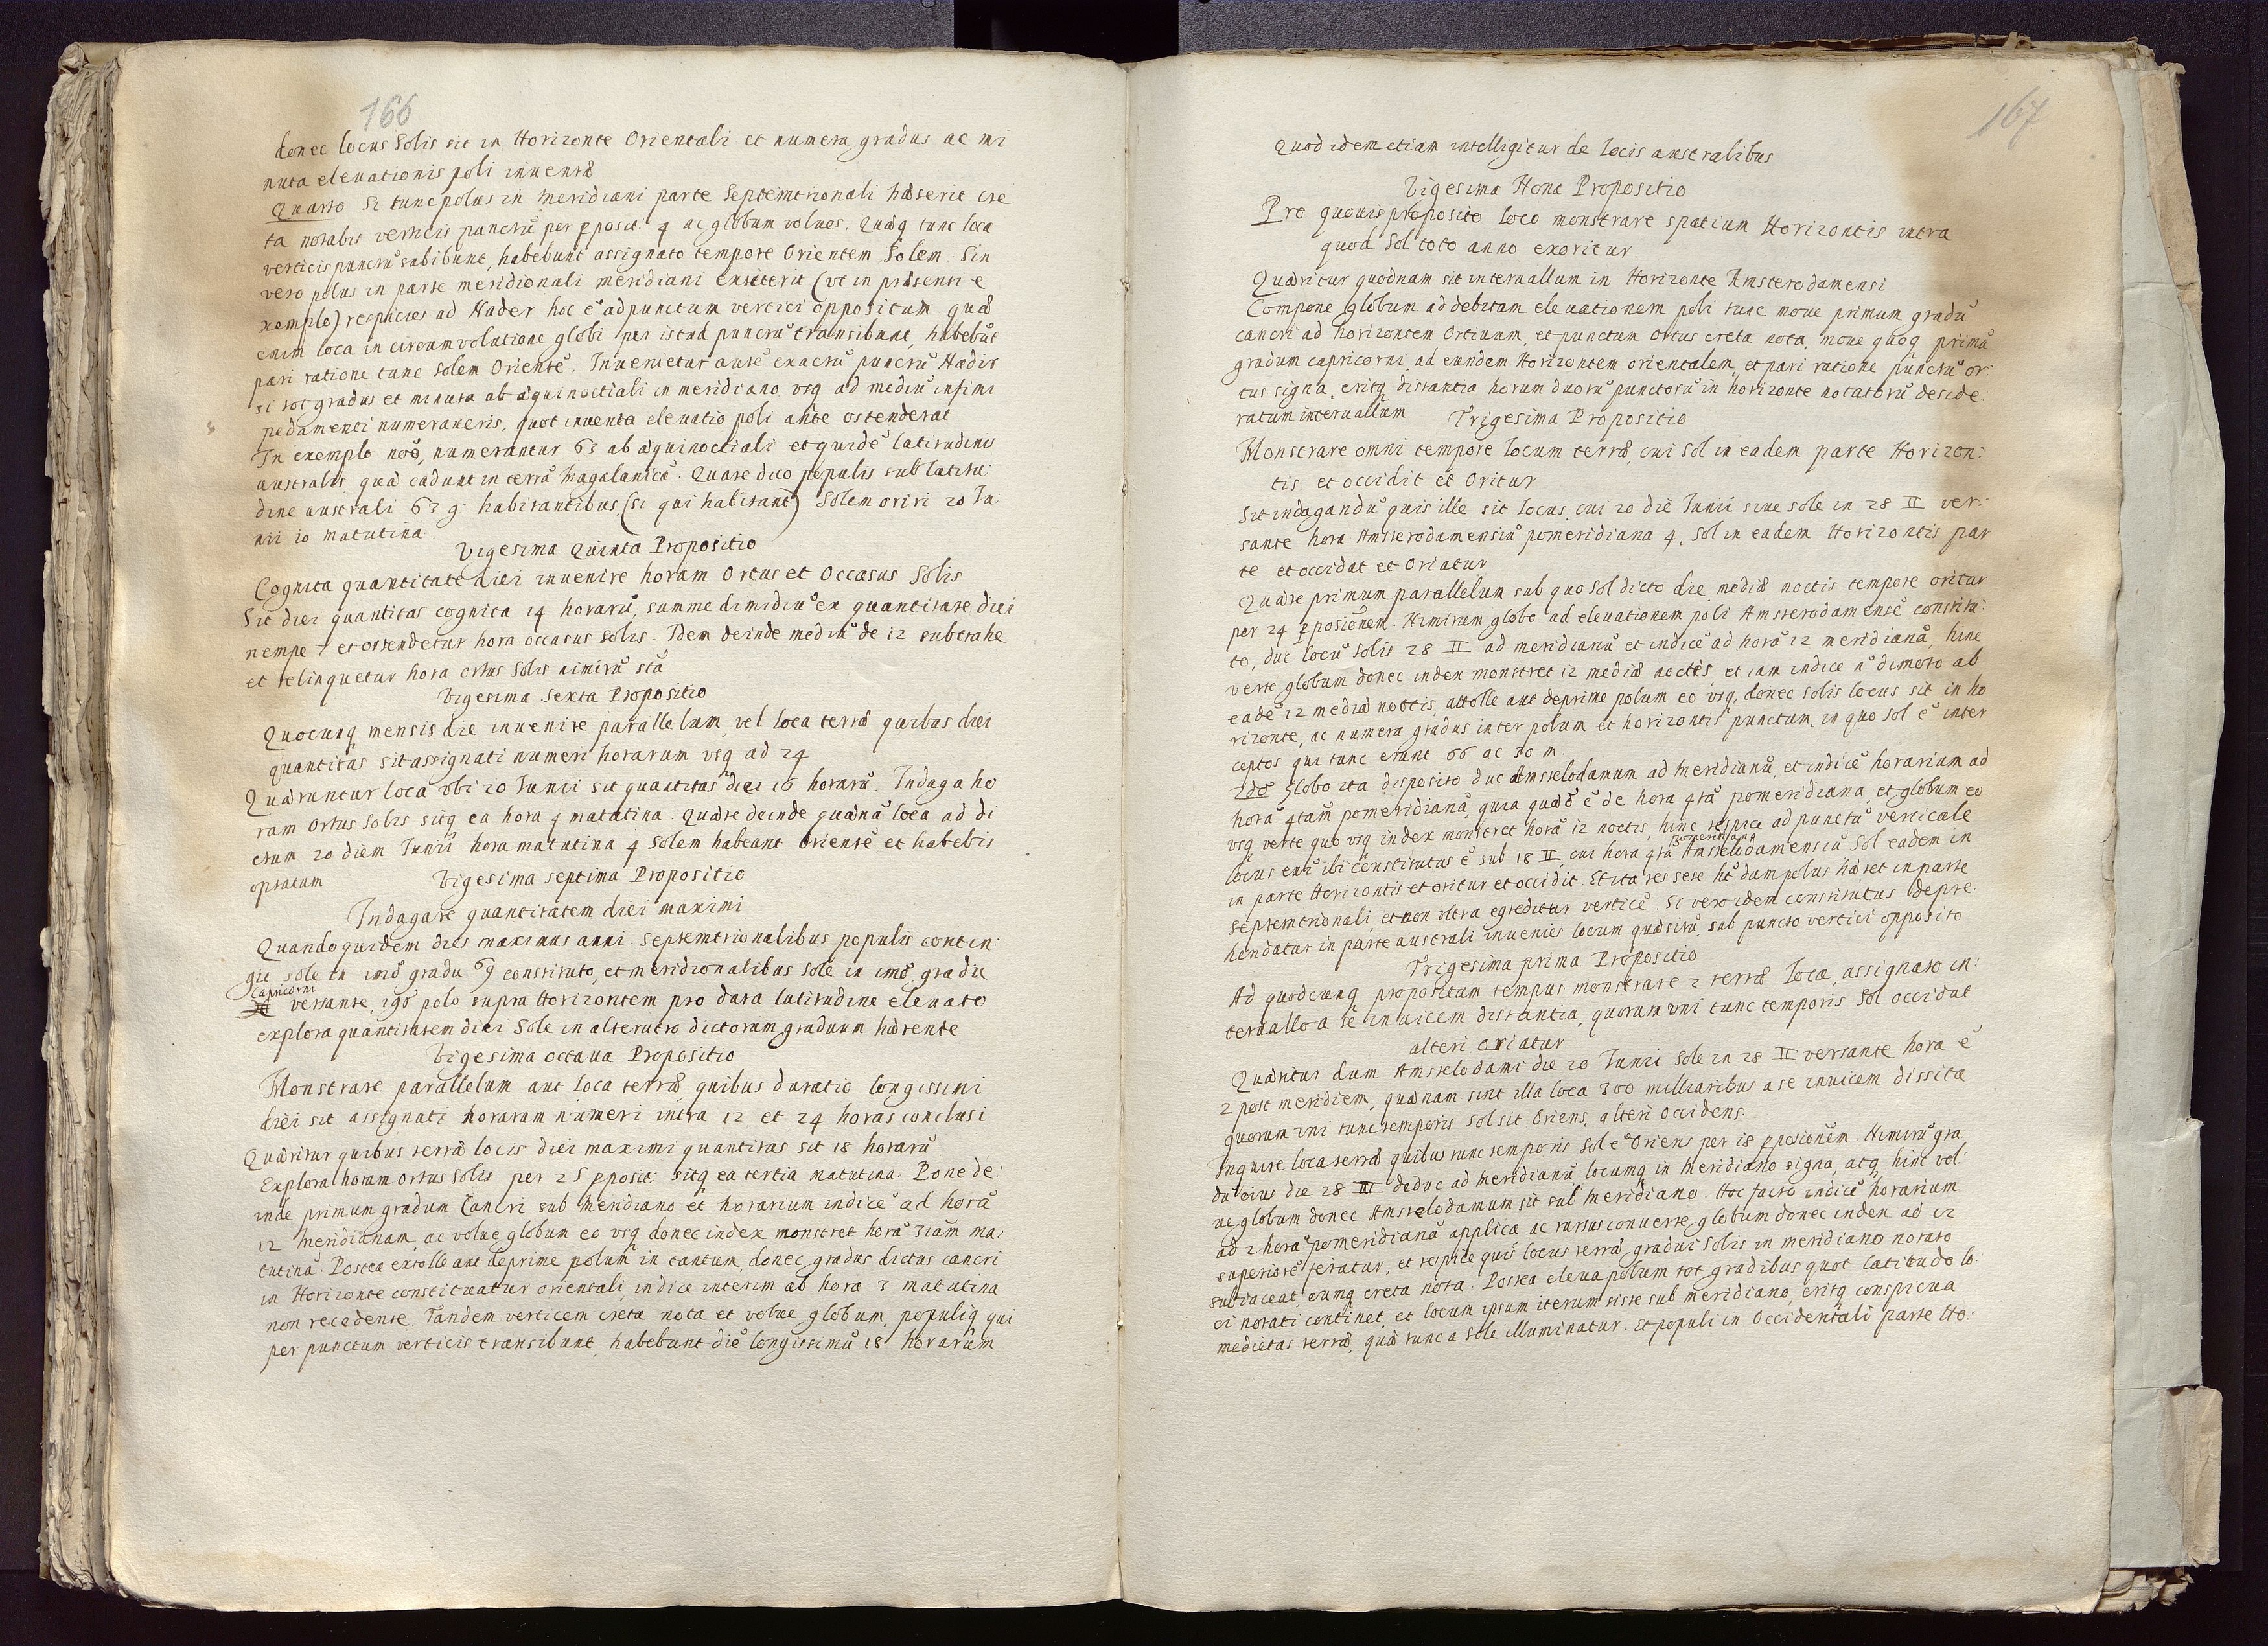 166
donec locus Solis sit in Horizonte Orientali et numera gradus ac mi
nuta eleuationis poli inuentæ
Quarto Si tunc polus in meridiani parte Septemtrionali hæserit cre
ta notabis verticis punctū per pposit. 4 ac globum volues. Quæq tunc loca
verticis punctū subibunt, habebunt assignato tempore Orientem Solem. Sin
vero polus in parte meridionali meridiani extiterit (vt in præsenti e
xemplo) respicies ad Nader hoc ē ad punctum vertici oppositum quæ
enim loca in circumuolutione globi per istud punctū transibunt, habebūt
pari ratione tunc Solem Orientē. Inuenietur autē exactū punctū Nadir
si tot gradus et minuta ab æquinoctiali in meridiano vsq ad mediū infimi
pedamenti numeraueris, quot inuenta eleuatio poli ante ostenderat
In exemplo nrō, numerantur 63 ab æquinoctiali et quidē latitudinis
australis quæ cadunt in terrā Magalanicā. Quare dico populis sub latitu:
dine australi 63 g. habitantibus (si qui habitant) Solem oriri 20 Iu:
nii 10 matutina
Vigesima Quinta Propositio
Cognita quantitate diei inuenire horam Ortus et Occasus Solis
Sit diei quantitas cognita 14 horarū, summe dimidiū ex quantitate diei
nempe 7 et ostendetur hora occasus solis. Idem deinde mediū de 12 subtrahe
et relinquetur hora ortus Solis nimirū 5ta
Vigesima Sexta Propositio
Quocunq mensis die inuenire parallelum, vel loca terræ quibus diei
quantitas sit assignati numeri horarum vsq ad 24
Quæruntur loca vbi 20 Iunii sit quantitas diei 16 horarū. Indaga ho
ram Ortus Solis sitq ea hora 4 matutina. Quære deinde quænā loca ad di
ctum 20 diem Iunii hora matutina 4 Solem habeant Orientē et habebis
optatum
Vigesima septima Propositio
Indagare quantitatem diei maximi
Quandoquidem dies maximus anni Septemtrionalibus populis contin:
git sole in imō gradu ♋ constituto, et meridionalibus Sole in imō gradu
Capricorni
versante, igō polo supra Horizontem pro data latitudine eleuato
explora quantitatem diei Sole in alterutro dictorum graduum hærente
Vigesima octaua Propositio
Monstrare parallelum aut loca terræ, quibus duratio longissimi
diei sit assignati horarum numeri intra 12 et 24 horas conclusi
Quæritur quibus terræ locis diei maximi quantitas sit 18 horarū
Explora horam ortus Solis per 25 pposit. sitq ea tertia matutina. Pone de:
inde primum gradum Cancri sub Meridiano et horarium indicē ad horā
12 meridianam, ac volue globum eo vsq donec index monstret horā 3iam ma:
tutinā. Postea extolle aut deprime polum in tantum, donec gradus dictus cancri
in Horizonte constituatur orientali, indice interim ab hora 3 matutina
non recedente. Tandem verticem creta nota et volue globum, populiq qui
per punctum verticis transibunt, habebunt diē longissimū 18 horarum
167
Quod idem etiam intelligitur de locis australibus
Vigesima Nona Propositio
Pro quouis proposito loco monstrare spatium Horizontis intra
quod Sol toto anno exoritur
Quæritur quodnam sit interuallum in Horizonte Amsterodamensi
Compone globum ad debitam eleuationem poli tunc moue primum gradū
cancri ad horizontem Ortiuum, et punctum Ortus creta nota, moue quoq primū
gradum capricorni ad eundem Horizontem orientalem, et pari ratione punctū or:
tus signa, eritq distantia horum duorū punctorū in horizonte notatorū deside:
ratum interuallum
Trigesima Propositio
Monstrare omni tempore locum terræ, cui Sol in eadem parte Horizon:
tis et occidit et Oritur
Sit indagandū quis ille sit locus, cui 20 die Iunii siue sole in 28 ♊ ver:
sante hora Amsterodamensiū pomeridiana 4, Sol in eadem Horizontis par
te et occidat et Oriatur
Quære primum parallelum sub quo Sol dicto die mediæ noctis tempore oritur
per 24 pposiōnem. Nimirum globo ad eleuationem poli Amsterodamensē constitu:
to, duc locū solis 28 ♊ ad meridianū et indicē ad horā 12 meridianā, hinc
verte globum donec index monstret 12 mediæ noctis, et iam indice ñ dimoto ab
eadē 12 mediæ noctis, attolle aut deprime polum eo vsq, donec solis locus sit in ho
rizonte, ac numera gradus inter polum et horizontis punctum in quo sol ē inter
ceptos qui tunc erunt 66 ac 30 m.
2dō Globo ita disposito duc Amstelodamum ad Meridianū, et indicē horarium ad
horā 4tam pomeridianā, quia quæō ē de hora 4tā pomeridiana, et globum eo
vsq verte quo vsq index monstret horā 12 noctis, hinc respice ad punctū verticale
pomeridiana
locus enī ibi constitutus ē sub 18 ♊, cui hora 4tā Amstelodamensiū Sol eadem in
in parte Horizontis et oritur et occidit. Et ita res sese ht dum polus hæret in parte
septemtrionali, et non vltra egreditur verticē. Si vero idem constitutus depre:
hendatur in parte australi inuenies locum quæsitū, sub puncto vertici opposito
Trigesima prima Propositio
Ad quodcunq propositum tempus monstrare 2 terræ loca, assignato in:
teruallo a se inuicem distantia, quorum vni tunc temporis Sol occidat
alteri oriatur
Quæritur dum Amstelodami die 20 Iunii Sole in 28 ♊ versante hora ē
2 post meridiem, quænam sint illa loca 300 milliaribus a se inuicem dissita
quorum vni tunc temporis Sol sit Oriens, alteri Occidens.
Inquire loca terræ quibus tunc temporis Sol ē Oriens per 18 pposiōnem Nimirū gra:
dū eius die 28 ♊ deduc ad meridianū, locumq in meridiano signa, atq hinc vol:
ue globum donec Amstelodamum sit sub meridiano. Hoc facto indicē horarium
ad 2 horā pomeridianā applica ac rursus conuerte globum donec index ad 12
superiorē feratur, et respice quis locus terræ gradui Solis in meridiano notato
subiaceat, eumq creta nota. Postea eleua polum tot gradibus quot latitudo lo:
ci notati continet, et locum ipsum iterum siste sub meridiano, eritq conspicua
medietas terræ, quæ tunc a Sole illuminatur. Et populi in Occidentali parte Ho: